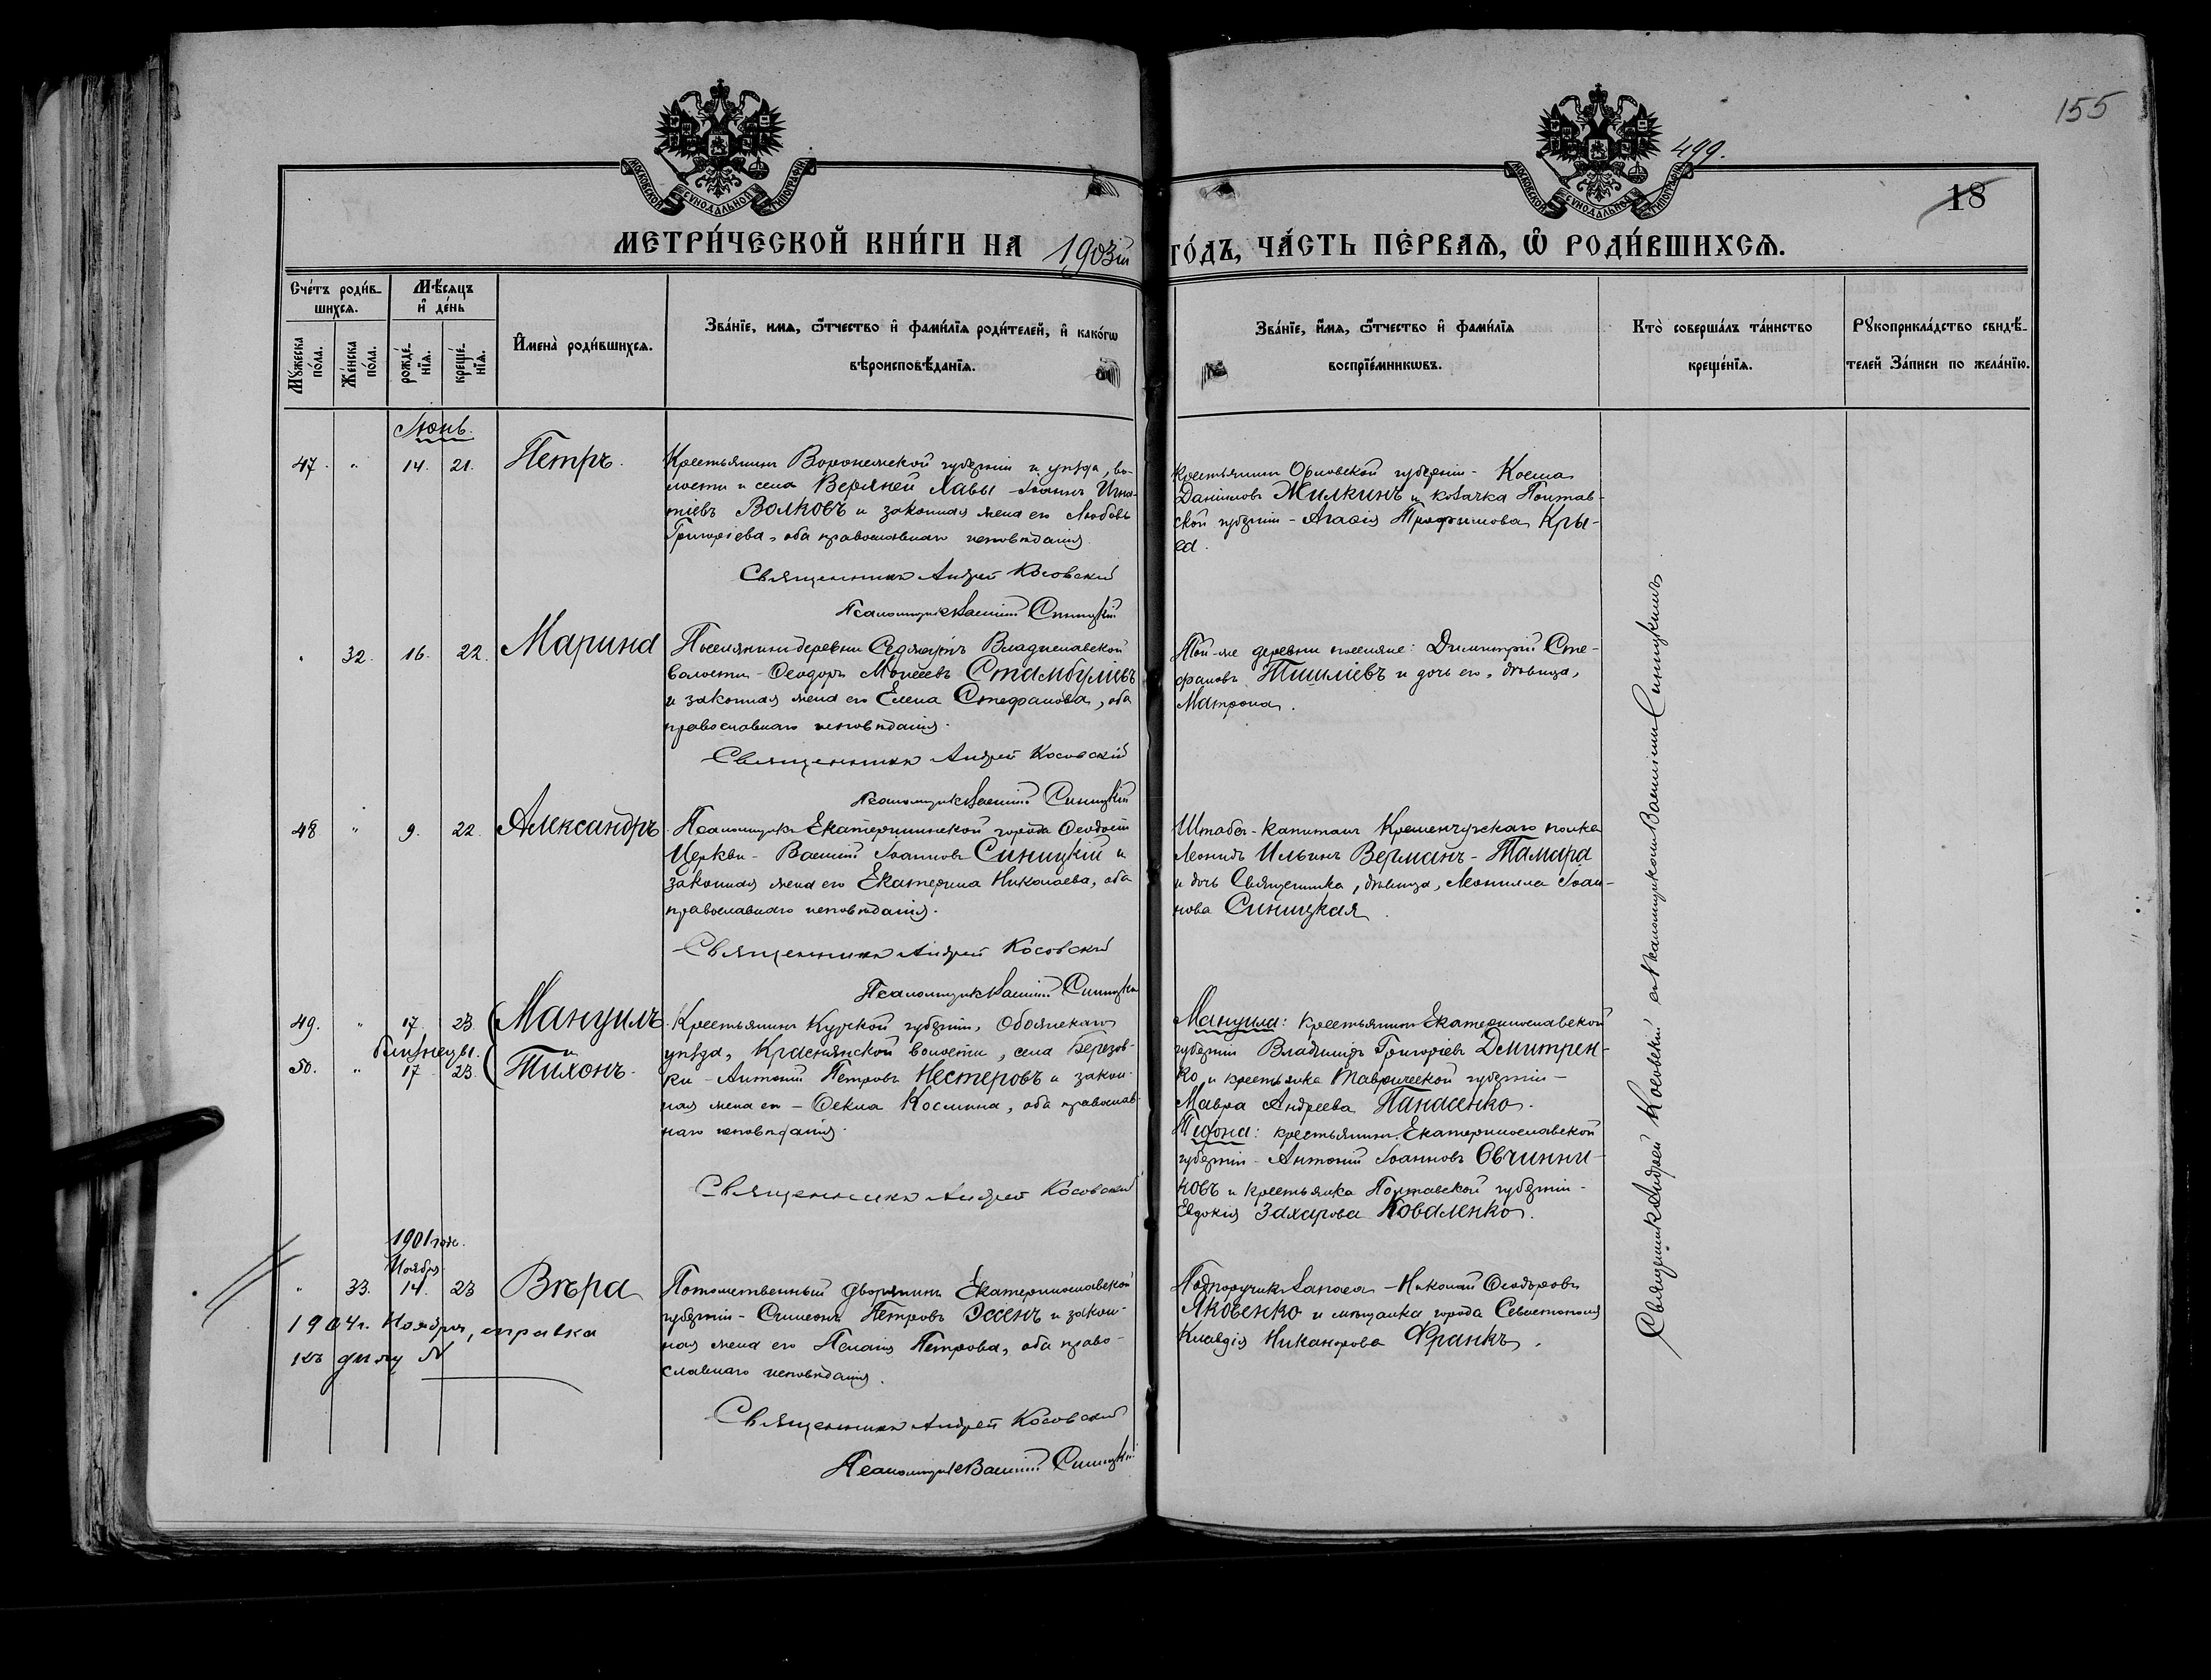 155
499.
18
МОСКОВСКОЙ СѴНОДАЛЬНОЙ ТИПОГРАФІИ
МОСКОВСКОЙ СѴНОДАЛЬНОЙ ТИПОГРАФІИ
МЕТРИ́ЧЕСКОЙ КНИ́ГИ НА 1903й ГО́ДЪ, ЧА́СТЬ ПЕ́РВАѦ, Ѡ РОДИ́ВШИХСѦ.
Сче́тъ роди́в-
шихсѧ.
Мѣ́сяцъ
и҆ де́нь
Мꙋ́жеска по́ла.
Же́нска по́ла.
рожде́-
нїѧ.
креще́-
нїѧ.
И҆мена̀ роди́вшихсѧ.
Зва́нїе, имѧ, ѿтчество и҆ фами́лїѧ роди́телей, и҆ како́гѡ
вѣроисповѣ́данїѧ.
Зва́нїе, и҆мѧ, ѿтчество и҆ фами́лїѧ
воспрїе́мникѡвъ.
Кто̀ соверша́лъ та́инство
креще́нїѧ.
Рꙋкоприкла́дство свидѣ́-
телей За́писи по жела́нїю.
Іюнь.
47. " 14. 21. Петръ.
Крестьянинъ Воронежской губерніи и уѣзда, во-
лости и села Верхней Хавы - Іоаннъ Игна-
тіевъ Волковъ и законная жена его Любовь
Григоріева, оба православнаго исповѣданія.
Священникъ Андрей Косовскій
Псаломщикъ Василій Синицкій
Крестьянинъ Орловской губерніи - Косма
Даніиловъ Жилкинъ и козачка Полтав-
ской губерніи - Агафія Трофимова Кры-
са.
" 32. 16. 22. Марина
Поселянинъ деревни Владиславской
волости - Ѳеодоръ Моисеевъ Стамбуліевъ
и законная жена его Елена Стефанова, оба
православнаго исповѣданія.
Священникъ Андрей Косовскій
Псаломщикъ Василій Синицкій
Той-же деревни поселяне: Димитрій Сте-
фановъ Тишліевъ и дочь его, дѣвица,
Матрона.
48 " 9. 22. Александръ
Псаломщикъ Екатерининской города Ѳеодосіи
Церкви - Василій Іоанновъ Синицкій и
законная жена его Екатерина Николаева, оба
православнаго исповѣданія.
Священникъ Андрей Косовскій
Псаломщикъ Василій Синицкій
Штабсъ-капитанъ Кременчугскаго полка
Леонидъ Ильинъ Верманъ-Тамара
и дочь Священника, дѣвица, Іоан-
нова Синицкая.
49. " 17. 23. Мануилъ
близнецы. и
50. " 17. 23. Тихонъ.
Крестьянинъ Курской губерніи, Обоянскаго
уѣзда, Краснянской волости, села Березов-
ки - Антоній Петровъ Нестеровъ и закон-
ная жена его - Ѳекла Космина, оба православ-
наго исповѣданія.
Священникъ Андрей Косовскій
Мануила: крестьянинъ Екатеринославской
губерніи Владиміръ Григоріевъ Дмитрен-
ко и крестьянка Таврической губерніи -
Мавра Андреева Панасенко.
Тихона: крестьянинъ Екатеринославской
губерніи - Антоній Іоанновъ Овчинни-
ковъ и крестьянка Полтавской губерніи -
Евдокія Захарова Коваленко.
1901 года.
Ноября.
" 33. 14. 23 Вѣра
Потомственный дворянинъ Екатеринославской
губерніи - Симеонъ Петровъ Эссенъ и закон-
ная жена его Пелагія Петрова, оба право-
славнаго исповѣданія.
Священникъ Андрей Косовскій
Псаломщикъ Василій Синицкій
Подпоручикъ запаса - Николай Ѳеодоровъ
Яковенко и мѣщанка города Севастополя
Клавдія Никанорова Франкъ.
1904 г. Ноября, справка
къ дѣлу №
Священникъ Андрей Косовскій съ Псаломщикомъ Василіемъ Синицкимъ